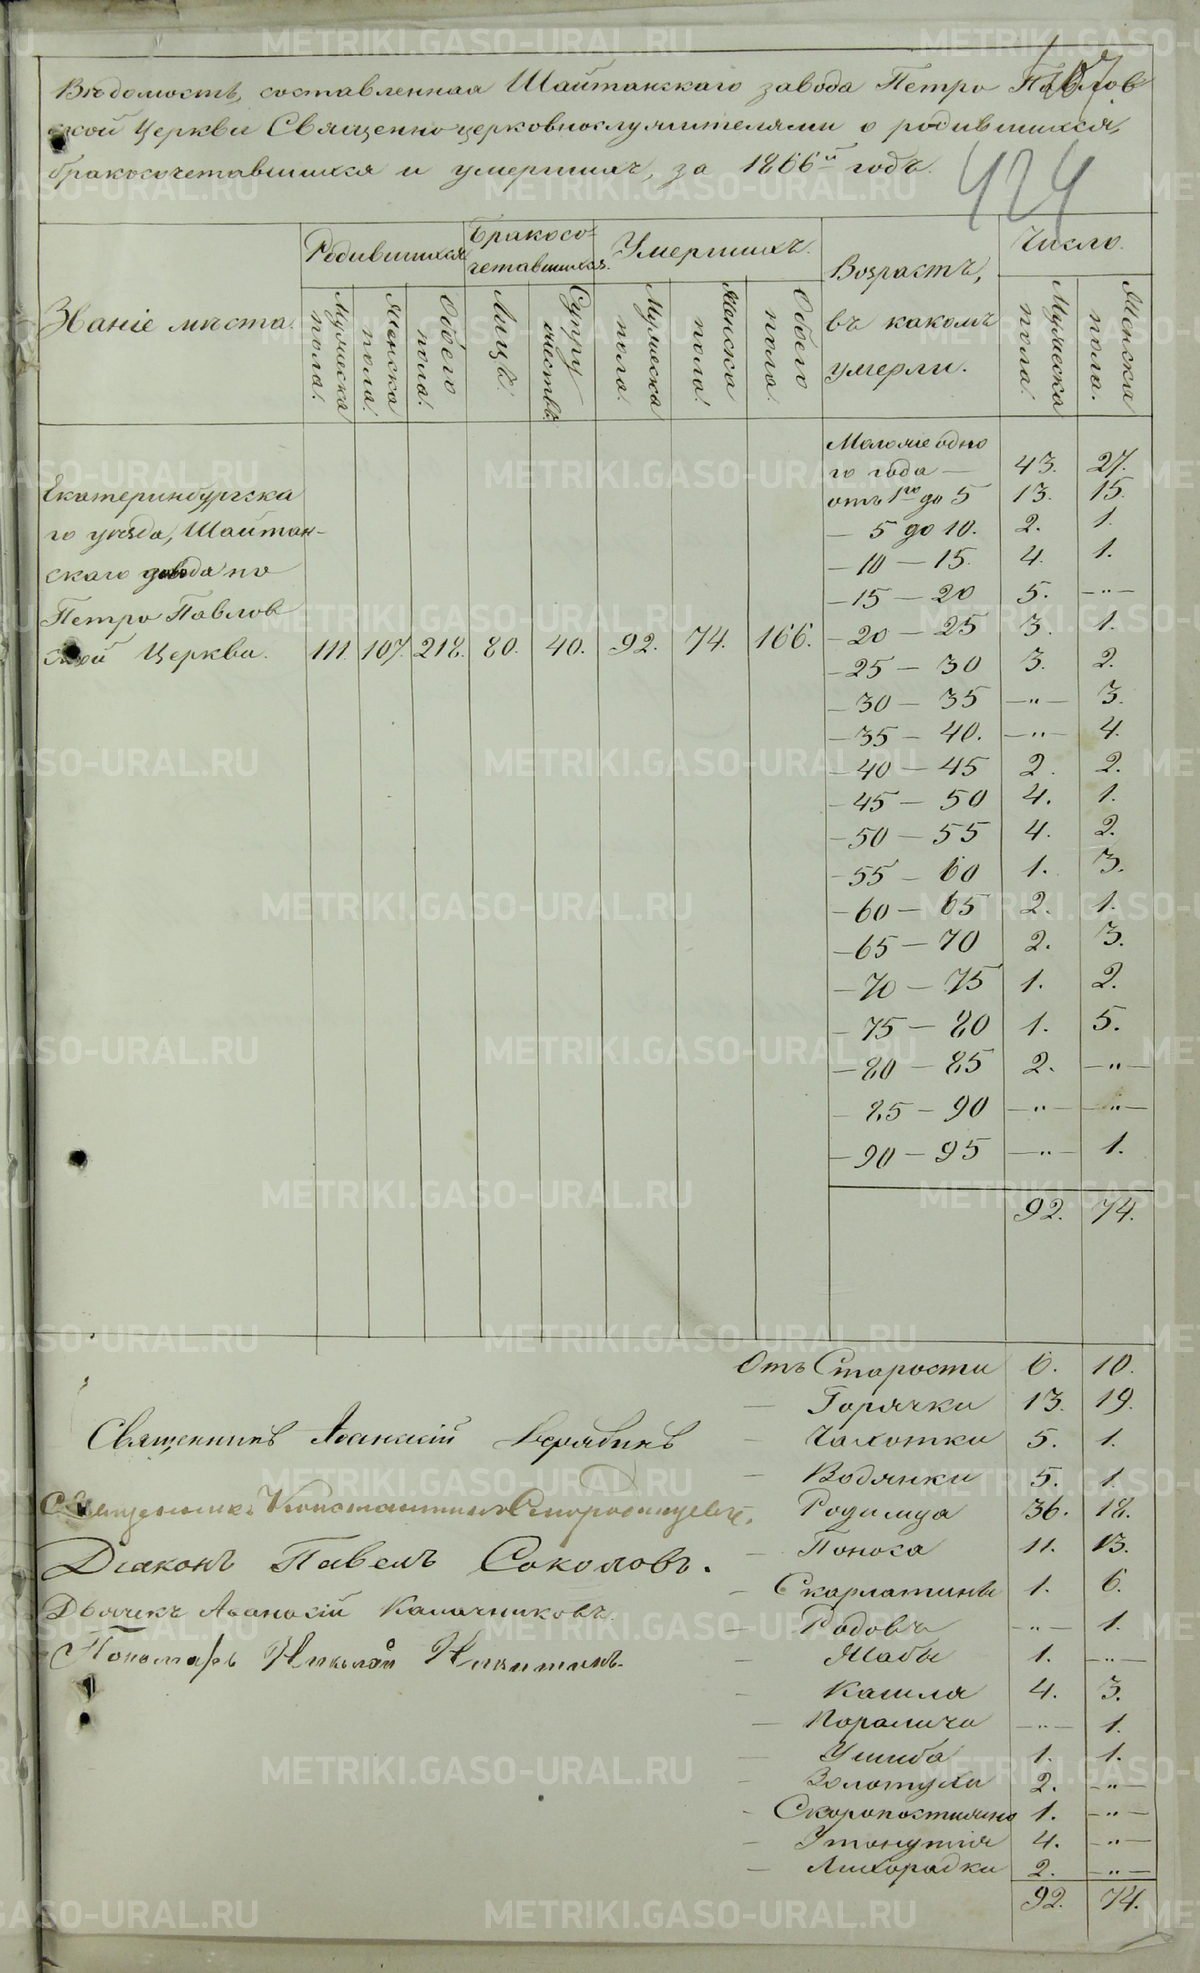 107
Вѣдомость, составленная Шайтанскаго завода Петро Павлов
ской Церкви Священноцерковнослужителями о родившихся,
бракосочетавшихся и умершихъ, за 1866й годъ.
424
Званіе мѣста.
Родившихся
Мужеска пола.
Женска пола.
Обоего пола.
Бракосо-
четавшихся.
Лицъ.
Супружествъ.
Умершихъ.
Мужеска пола.
Женска пола.
Обоего пола.
Возрастъ,
въ какомъ
умерли.
Число.
Мужеска пола.
Женска пола.
Екатеринбургска
го уѣзда, Шайтан-
скаго завода по
Петро Павлов
ской Церкви. 111. 107. 218. 80. 40. 92. 74. 166.
Моложе одно
го года — 43. 27.
отъ 1го до 5 13. 15.
— 5 до 10. 2. 1.
— 10 — 15. 4. 1.
— 15 — 20 5. —"—
— 20 — 25 3. 1.
— 25 — 30 3. 2.
— 30 — 35 —"— 3.
— 35 — 40. —"— 4.
— 40 — 45 2. 2.
— 45 — 50 4. 1.
— 50 — 55 4. 2.
— 55 — 60 1. 3.
— 60 — 65 2. 1.
— 65 — 70 2. 3.
— 70 — 75 1. 2.
— 75 — 80 1. 5.
— 80 — 85 2. —"—
— 85 — 90 —"— —"—
— 90 — 95 —"— 1.
92. 74.
Отъ Старости 6. 10.
— Горячки 13. 19.
— Чахотки 5. 1.
— Водянки 5. 1.
— Родимца 36. 18.
— Поноса 11. 13.
— Скарлатины 1. 6.
— Родовъ —"— 1.
— Жабы 1. —"—
— Кашля 4. 3.
— Поралича —"— 1.
— Ушиба 1. 1.
— Золотухи 2. —"—
— Скоропостижно 1. —"—
— Утонутія 4. —"—
— Лихорадки 2. —"—
92. 74.
Священникъ Аѳанасій
Священникъ Константинъ
Діаконъ Павелъ Соколовъ.
Дьячекъ Аѳанасій Калачниковъ.
Пономарь Николай Никитинъ.
METRIKI.GASO-URAL.RU